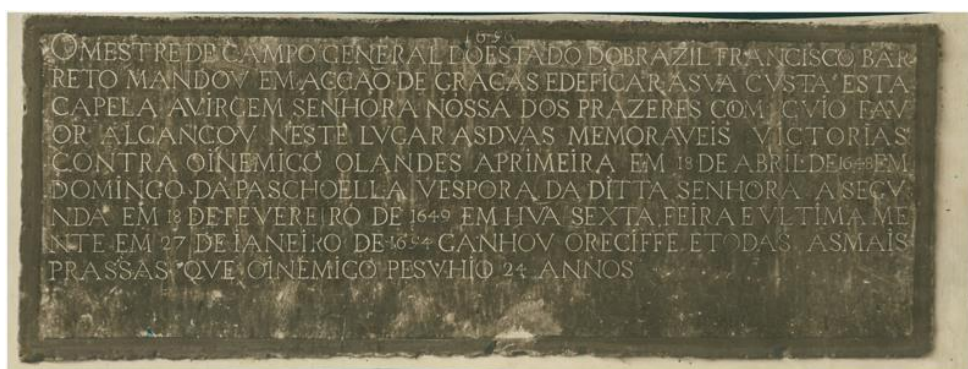 1656
O MESTRE DE CAMPO GENERAL DO ESTADO DO BRAZIL FRANCISCO BAR
RETO MANDOV EM ACCAO DE GRACAS EDEFICAR ASVA CVSTA ESTA
CAPELA AVIRGEM SENHORA NOSSA DOS PRAZERES COM CVIO FAV
OR ALCANCOV NESTE LVGAR ASDVAS MEMORAVEIS VICTORIAS
CONTRA OINEMICO OLANDES APRIMEIRA EM 18 DE ABRIL DE 1648 EM
DOMINGO DA PASCHOELLA VESPORA DA DITTA SENHORA A SEGV
NDA EM 18 DE FEVEREIRO DE 1649 EM HVA SEXTA FEIRA E VLTIMA ME
NTE EM 27 DE IANEIRO DE 1654 GANHOV ORECIFFE E TODAS ASMAIS
PRASSAS QVE OINEMICO PESVHIO 24 ANNOS